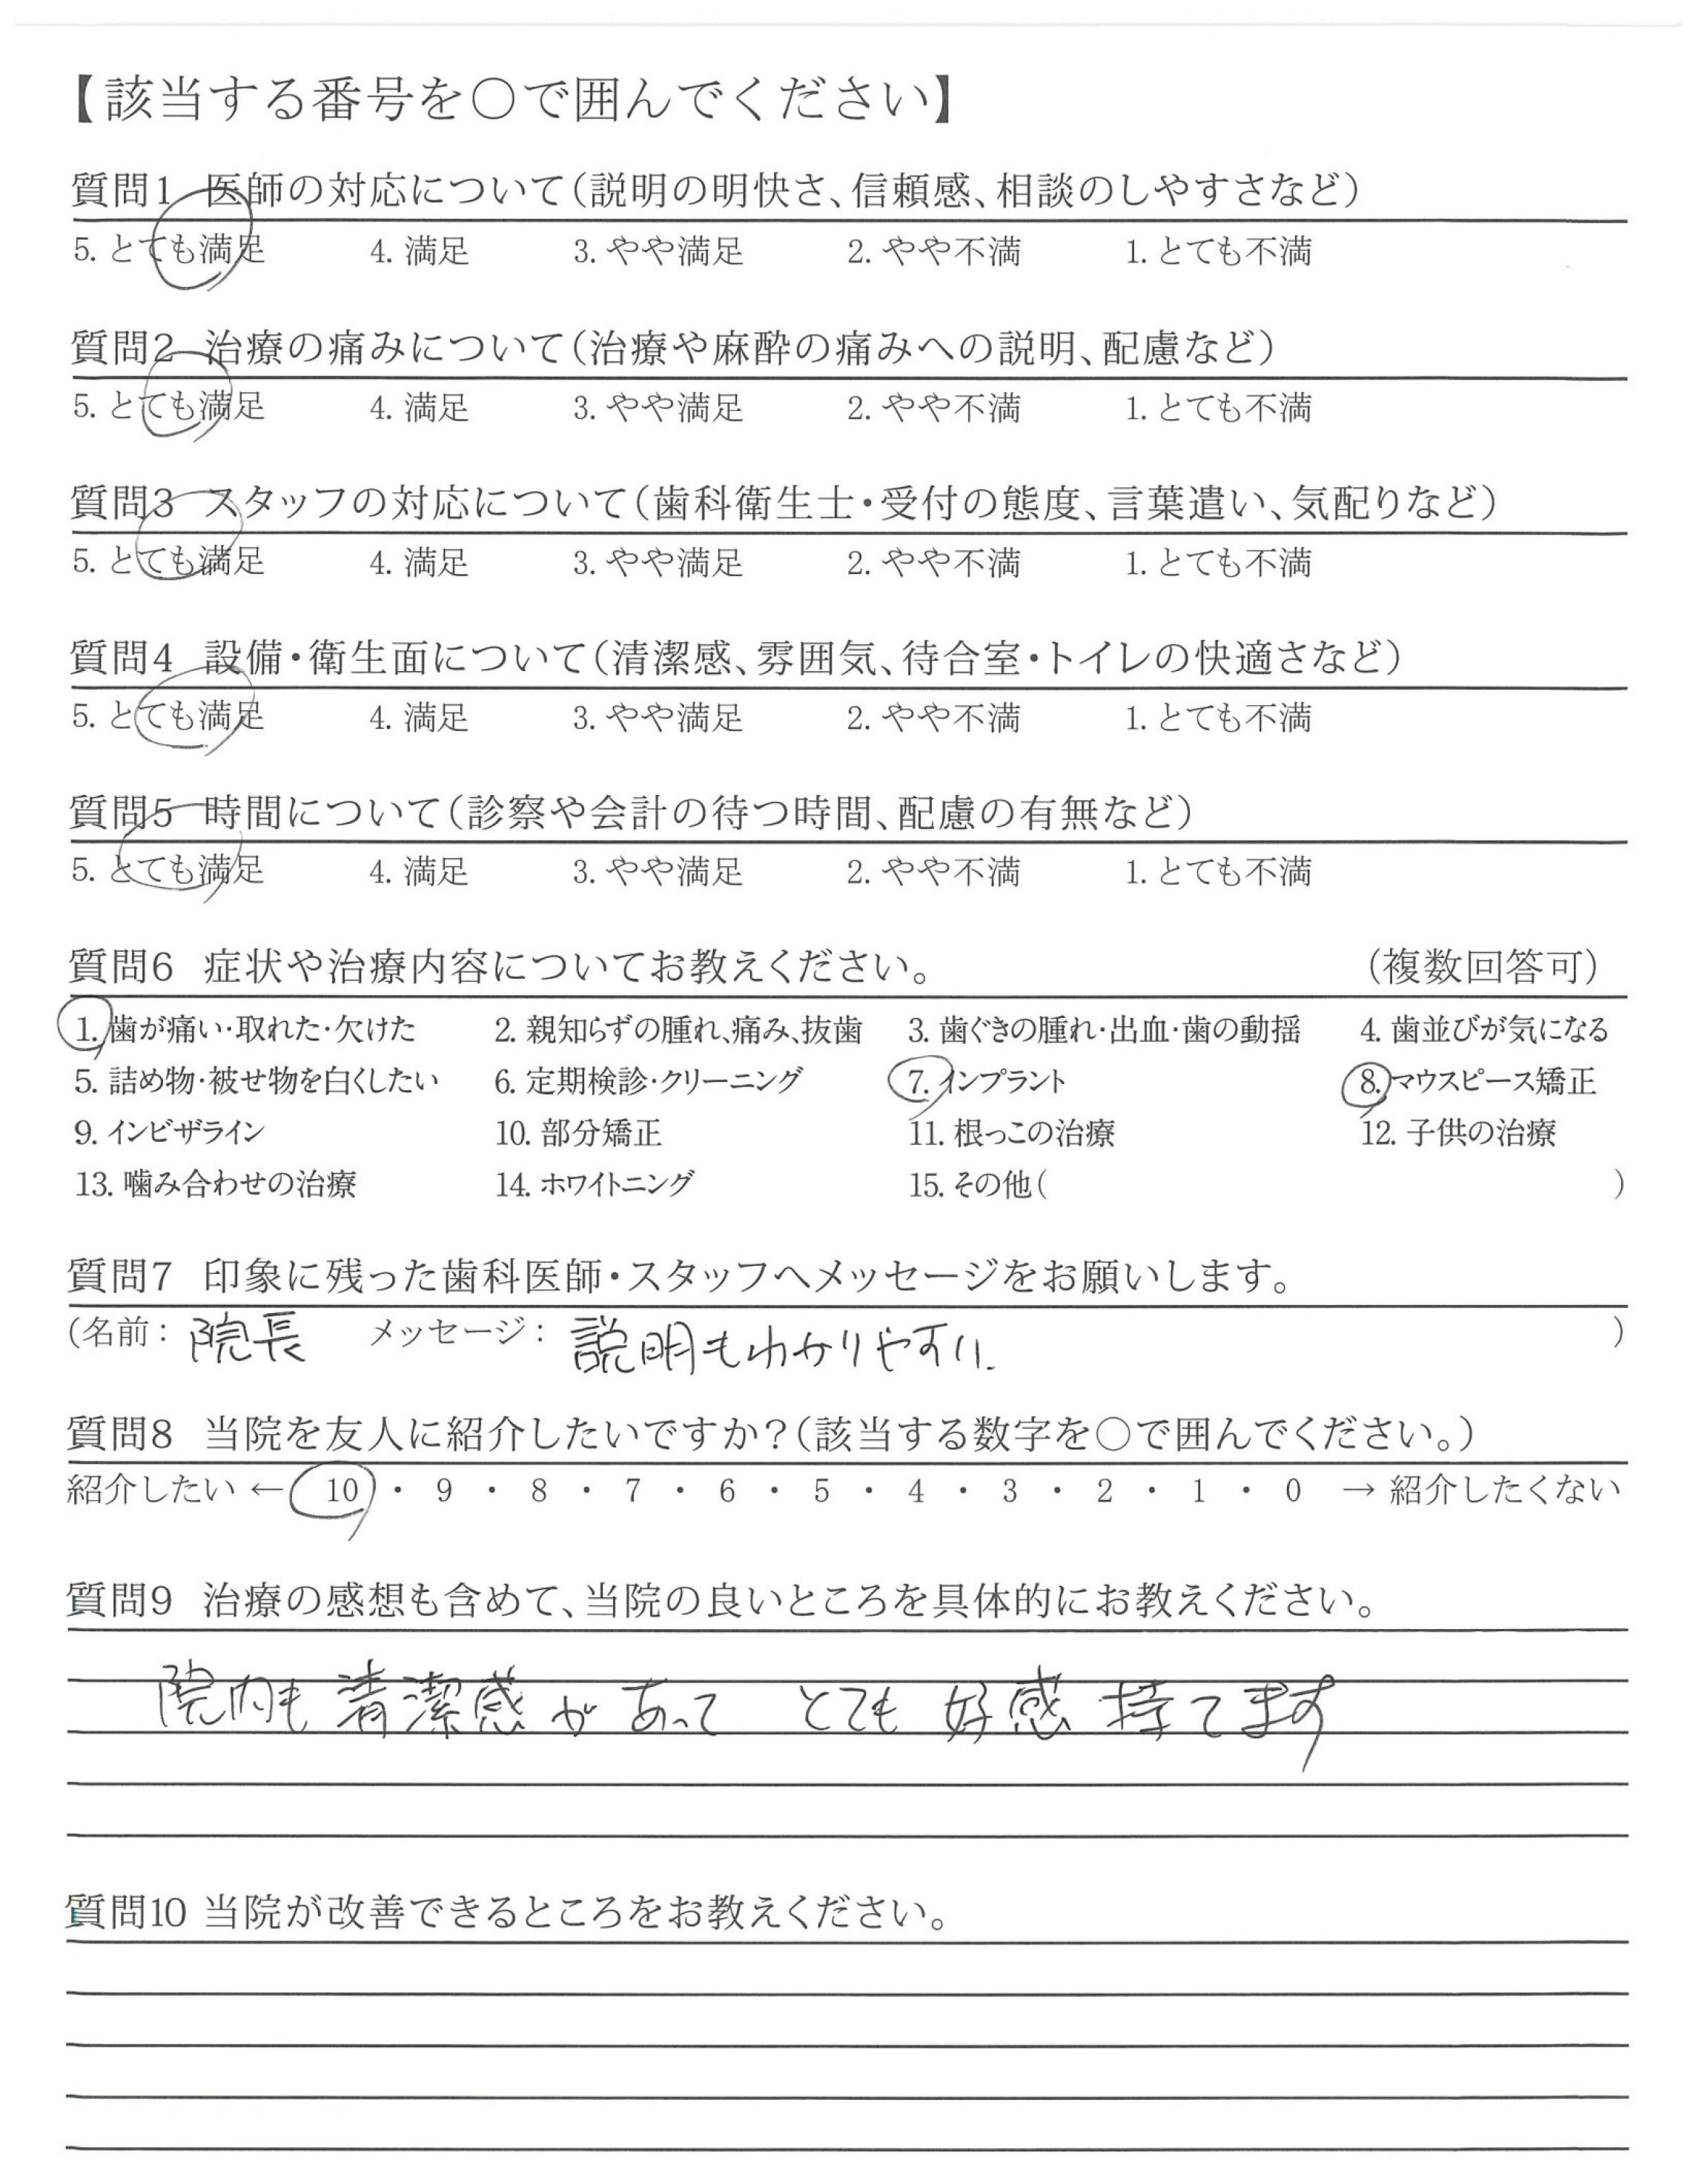 【該当する番号を○で囲んでください】
質問1 医師の対応について（説明の明快さ、信頼感、相談のしやすさなど）
5. とても満足 4. 満足 3. やや満足 2. やや不満 1. とても不満
質問2 治療の痛みについて（治療や麻酔の痛みへの説明、配慮など）
5. とても満足 4. 満足 3. やや満足 2. やや不満 1. とても不満
質問3 スタッフの対応について（歯科衛生士・受付の態度、言葉遣い、気配りなど）
5. とても満足 4. 満足 3. やや満足 2. やや不満 1. とても不満
質問4 設備・衛生面について（清潔感、雰囲気、待合室・トイレの快適さなど）
5. とても満足 4. 満足 3. やや満足 2. やや不満 1. とても不満
質問5 時間について（診察や会計の待つ時間、配慮の有無など）
5. とても満足 4. 満足 3. やや満足 2. やや不満 1. とても不満
質問6 症状や治療内容についてお教えください。 （複数回答可）
1. 歯が痛い・取れた・欠けた 2. 親知らずの腫れ、痛み、抜歯 3. 歯ぐきの腫れ・出血・歯の動揺 4. 歯並びが気になる
5. 詰め物・被せ物を白くしたい 6. 定期検診・クリーニング 7. インプラント 8. マウスピース矯正
9. インビザライン 10. 部分矯正 11. 根っこの治療 12. 子供の治療
13. 噛み合わせの治療 14. ホワイトニング 15. その他（ ）
質問7 印象に残った歯科医師・スタッフへメッセージをお願いします。
（名前： 院長 メッセージ： 説明もわかりやすい. ）
質問8 当院を友人に紹介したいですか？（該当する数字を○で囲んでください。）
紹介したい ← 10 ・ 9 ・ 8 ・ 7 ・ 6 ・ 5 ・ 4 ・ 3 ・ 2 ・ 1 ・ 0 → 紹介したくない
質問9 治療の感想も含めて、当院の良いところを具体的にお教えください。
院内も 清潔感が あって とても 好感 持てます
質問10 当院が改善できるところをお教えください。